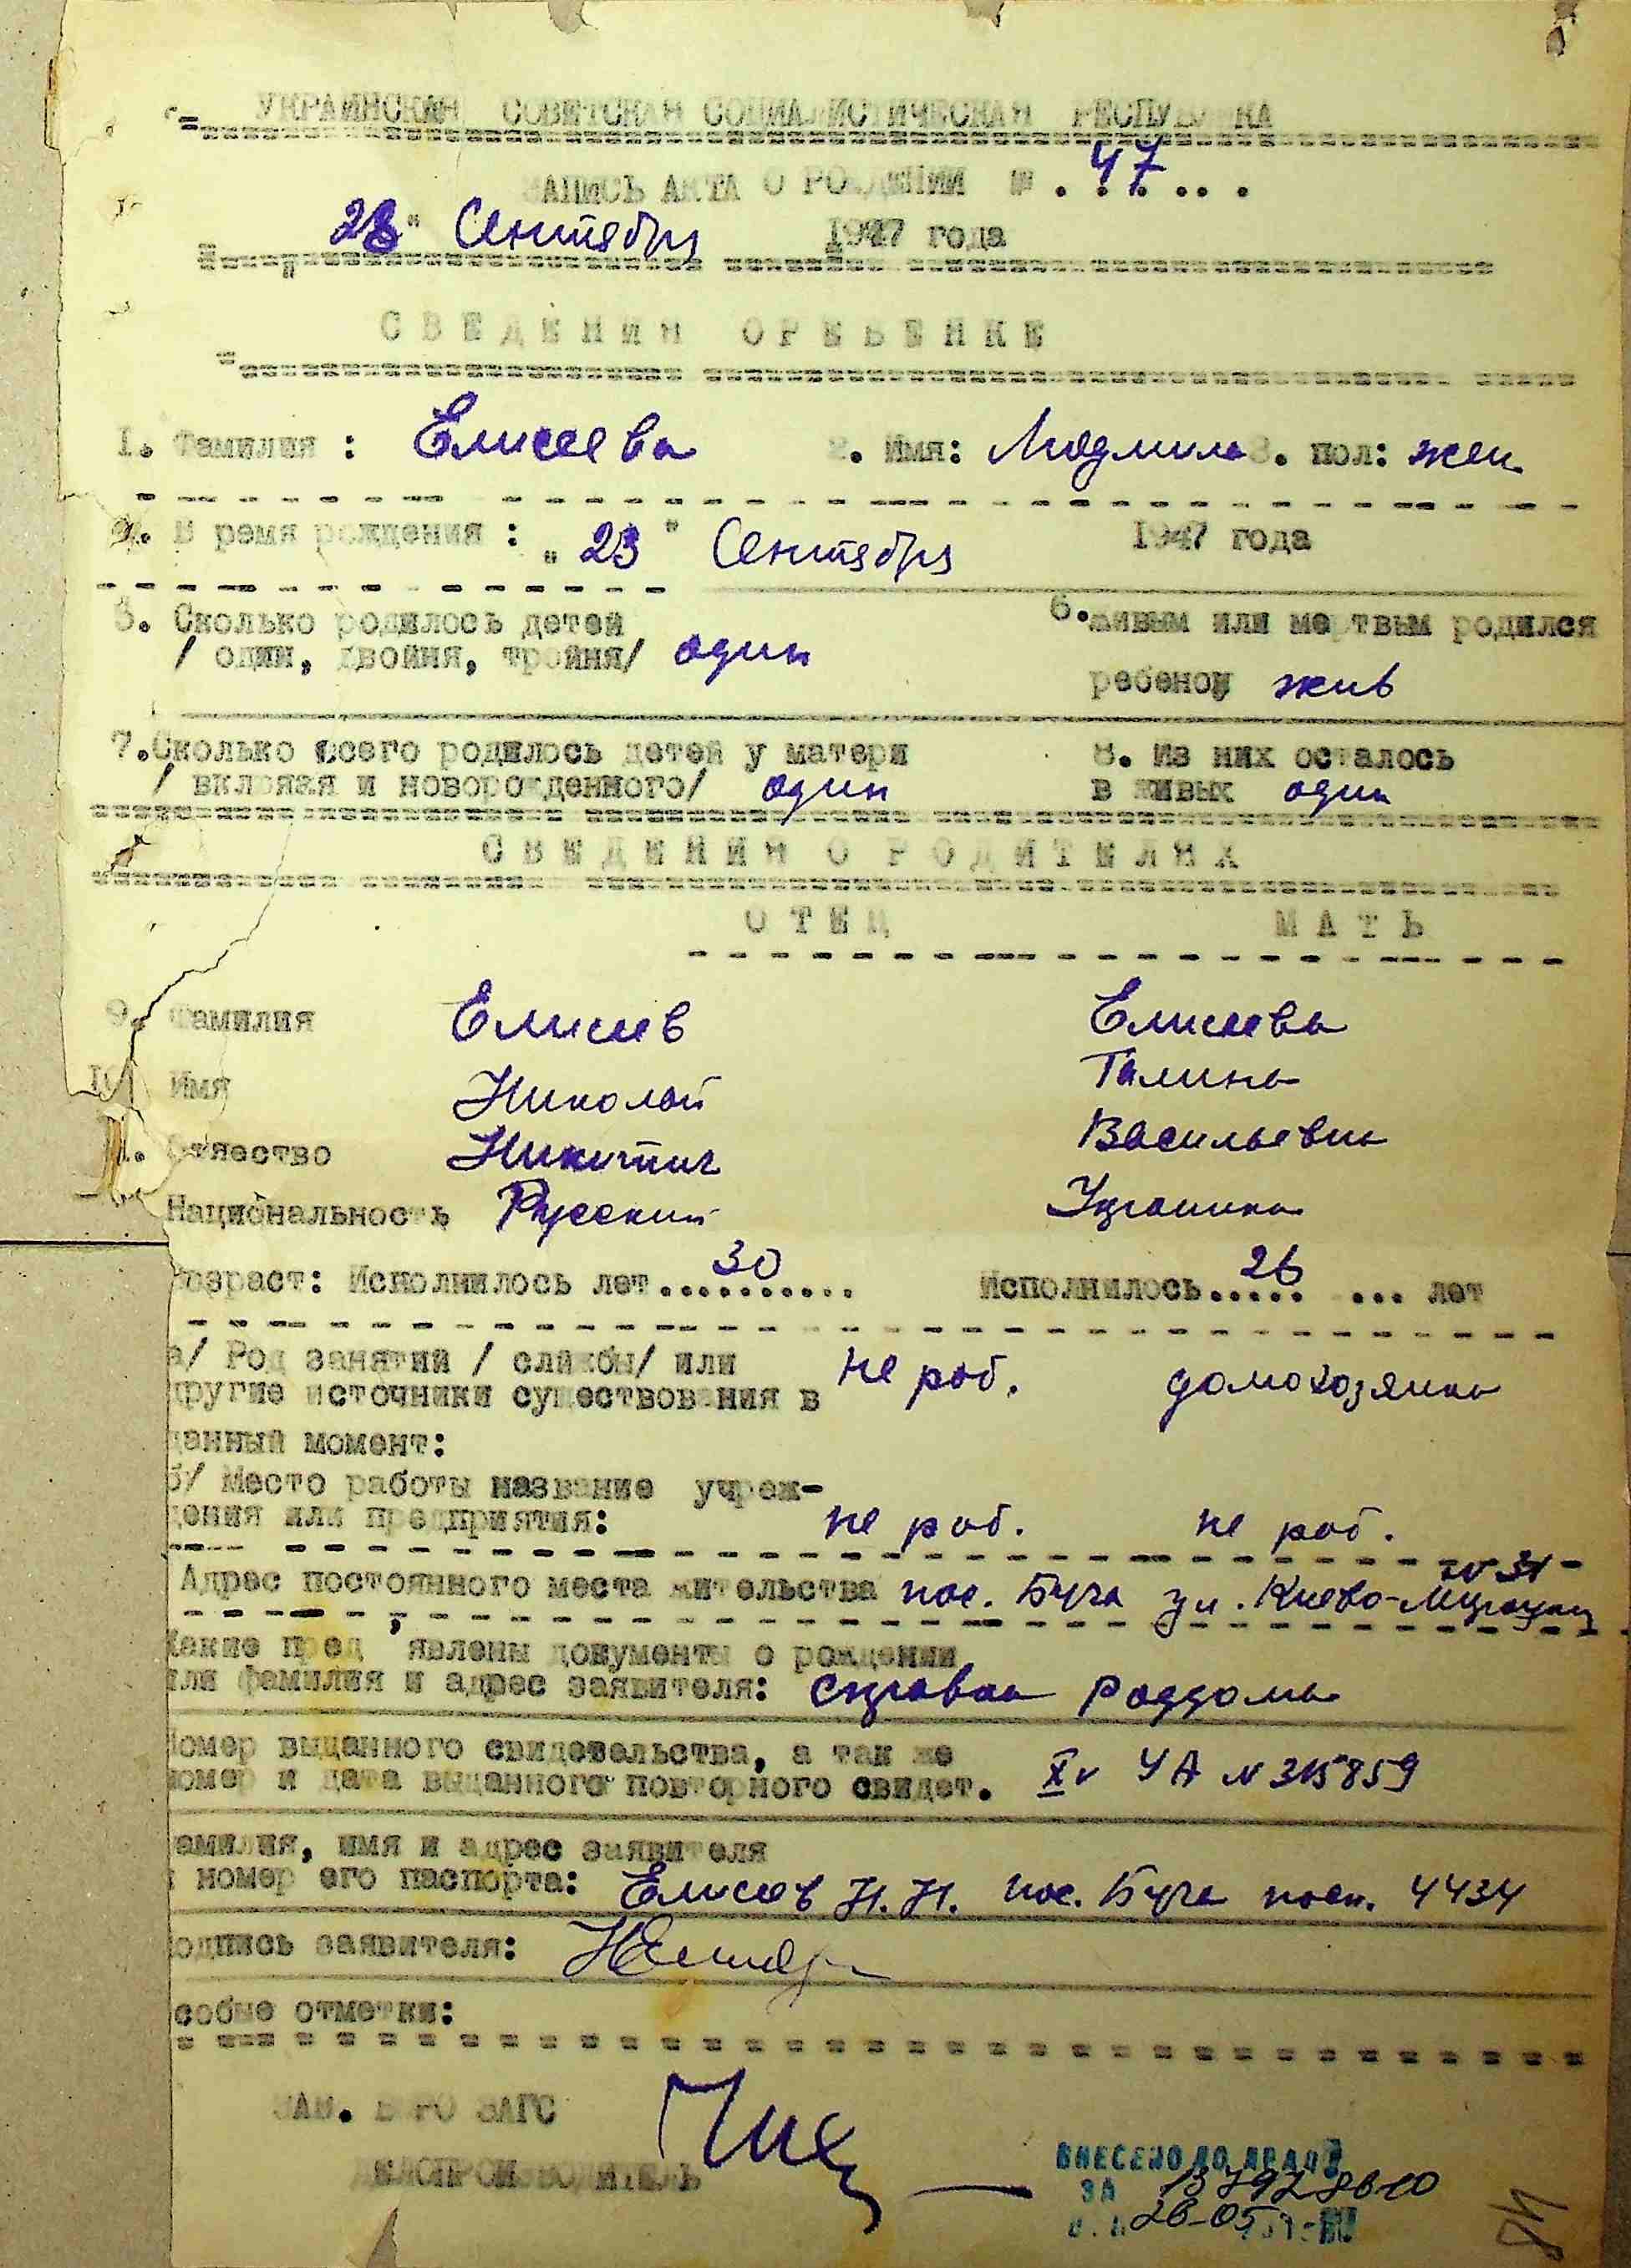 УКРАИНСКАЯ СОВЕТСКАЯ СОЦИАЛИСТИЧЕСКАЯ РЕСПУБЛИКА
ЗАПИСЬ АКТА О РОЖДЕНИИ № 47
28" Сентября 1947 года
СВЕДЕНИЯ О РЕБЕНКЕ
1. Фамилия: Елисеева 2. Имя: Людмила 3. пол: жен
4. В ремя рождения: "23" Сентября 1947 года
5. Сколько родилось детей 6. живым или мертвым родился
/ один, двойня, тройня/ один
ребенок жив
7. Сколько всего родилось детей у матери 8. Из них осталось
/ включая и новорожденного/ один в живых один
СВЕДЕНИЯ О РОДИТЕЛЯХ
ОТЕЦ МАТЬ
9. Фамилия Елисеев Елисеева
10. Имя Николай Галина
11. Отчество Никитич Васильевна
Национальность Русский Украинка
возраст: Исполнилось лет....30...... Исполнилось..26... ... лет
а/ Род занятий / службы/ или не раб. домохозяйка
другие источники существования в
данный момент:
б/ Место работы название учреж-
дения или предприятия: не раб. не раб.
№ 31
Адрес постоянного места жительства пос. Буча ул. Киево-
Какие пред'явлены документы о рождении
или фамилия и адрес заявителя: справка роддома
Номер выданного свидетельства, а так же
номер и дата выданного повторного свидет. УА № 315859
фамилия, имя и адрес заявителя
и номер его паспорта: Елисеев Н.Н. пос. Буча посп. 4434
подпись заявителя:
особые отметки:
ЗАВ. БЮРО ЗАГС
ДЕЛОПРОИЗВОДИТЕЛЬ
ВНЕСЕНО ДО ДРАЦС
ЗА